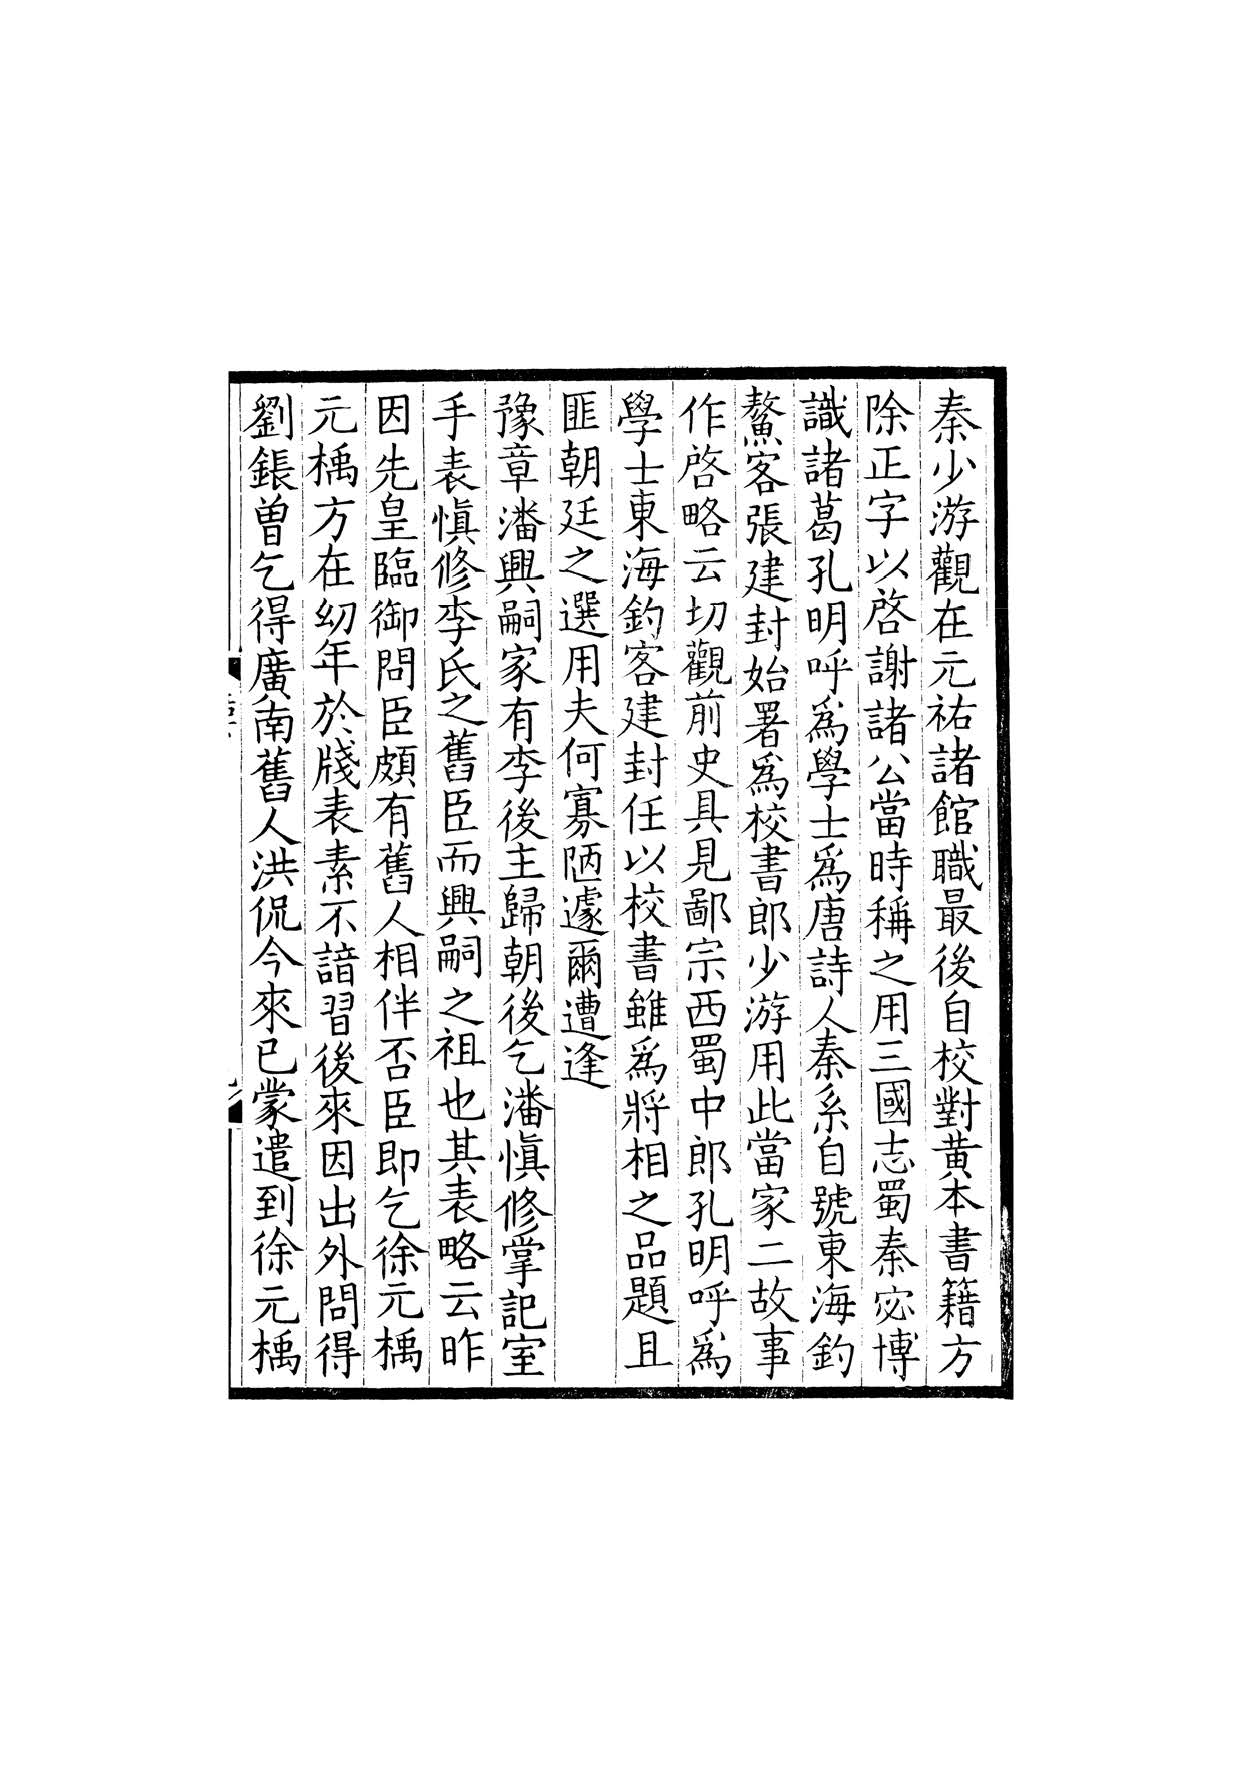 秦少游觀在元祐諸館職最後自校對黄本書籍方
除正字以啓謝諸公當時稱之用三國志蜀秦宓博
識諸葛孔明呼爲學士爲唐詩人秦系自號東海釣
鰲客張建封始署爲校書郎少游用此當家二故事
作啓略云切觀前史具見鄙宗西蜀中郎孔明呼爲
學士東海釣客建封任以校書雖爲將相之品題且
匪朝廷之選用夫何寡陋遽爾遭逢
豫章潘興嗣家有李後主歸朝後乞潘愼修掌記室
手表愼修李氏之舊臣而興嗣之祖也其表略云昨
因先皇臨御問臣頗有舊人相伴否臣即乞徐元楀
元楀方在幼年於牋表素不諳習後來因出外問得
劉鋹曾乞得廣南舊人洪侃今來已蒙遣到徐元楀